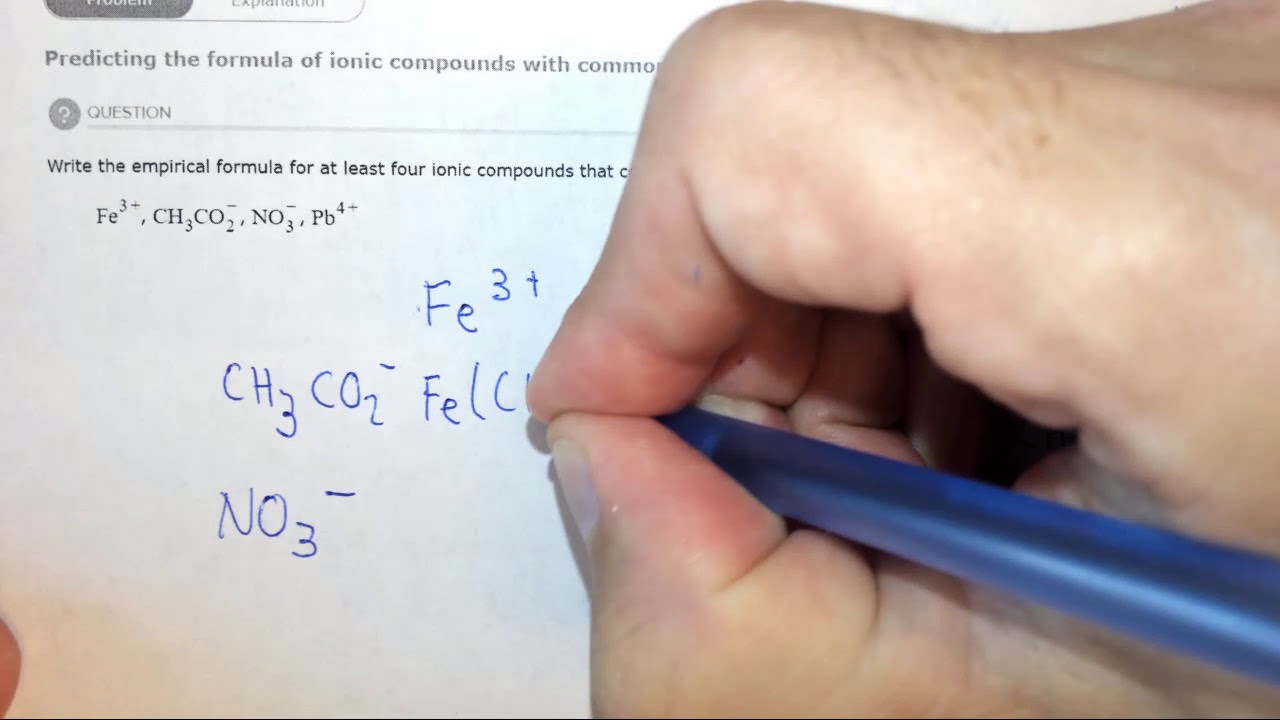 Problem Explanation
Predicting the formula of ionic compounds with commo
? QUESTION
Write the empirical formula for at least four ionic compounds that c
Fe³⁺, CH₃CO₂⁻, NO₃⁻, Pb⁴⁺
Fe³⁺
CH₃CO₂⁻ Fe(C
NO₃⁻